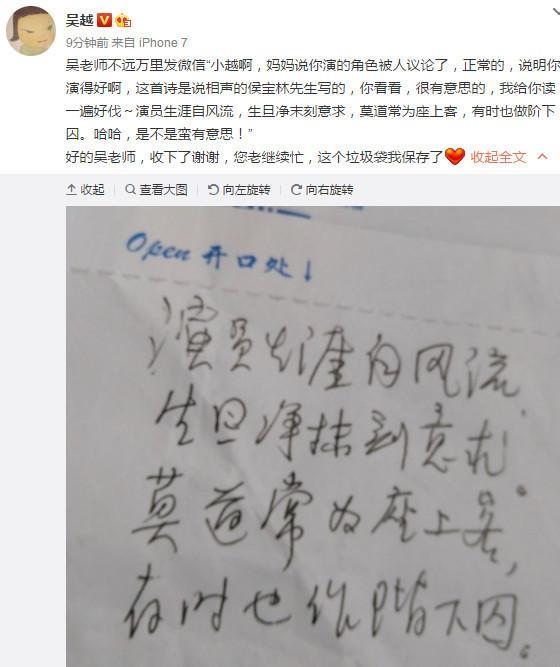 吴越
9分钟前 来自 iPhone 7
吴老师不远万里发微信“小越啊，妈妈说你演的角色被人议论了，正常的，说明你
演得好啊，这首诗是说相声的侯宝林先生写的，你看看，很有意思的，我给你读
一遍好伐～演员生涯自风流，生旦净末刻意求，莫道常为座上客，有时也做阶下
囚。哈哈，是不是蛮有意思！”
好的吴老师，收下了谢谢，您老继续忙，这个垃圾袋我保存了 收起全文
收起 查看大图 向左旋转 向右旋转
Open 开口处↓
演员生涯自风流，
生旦净抹刻意求。
莫道常为座上客，
有时也作阶下囚。